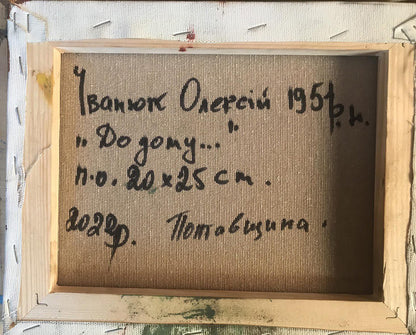 Іванюк Олексій 1951 р.н.
„До дому..."
п.о. 20х25 cm.
2022р. Полтавщина.